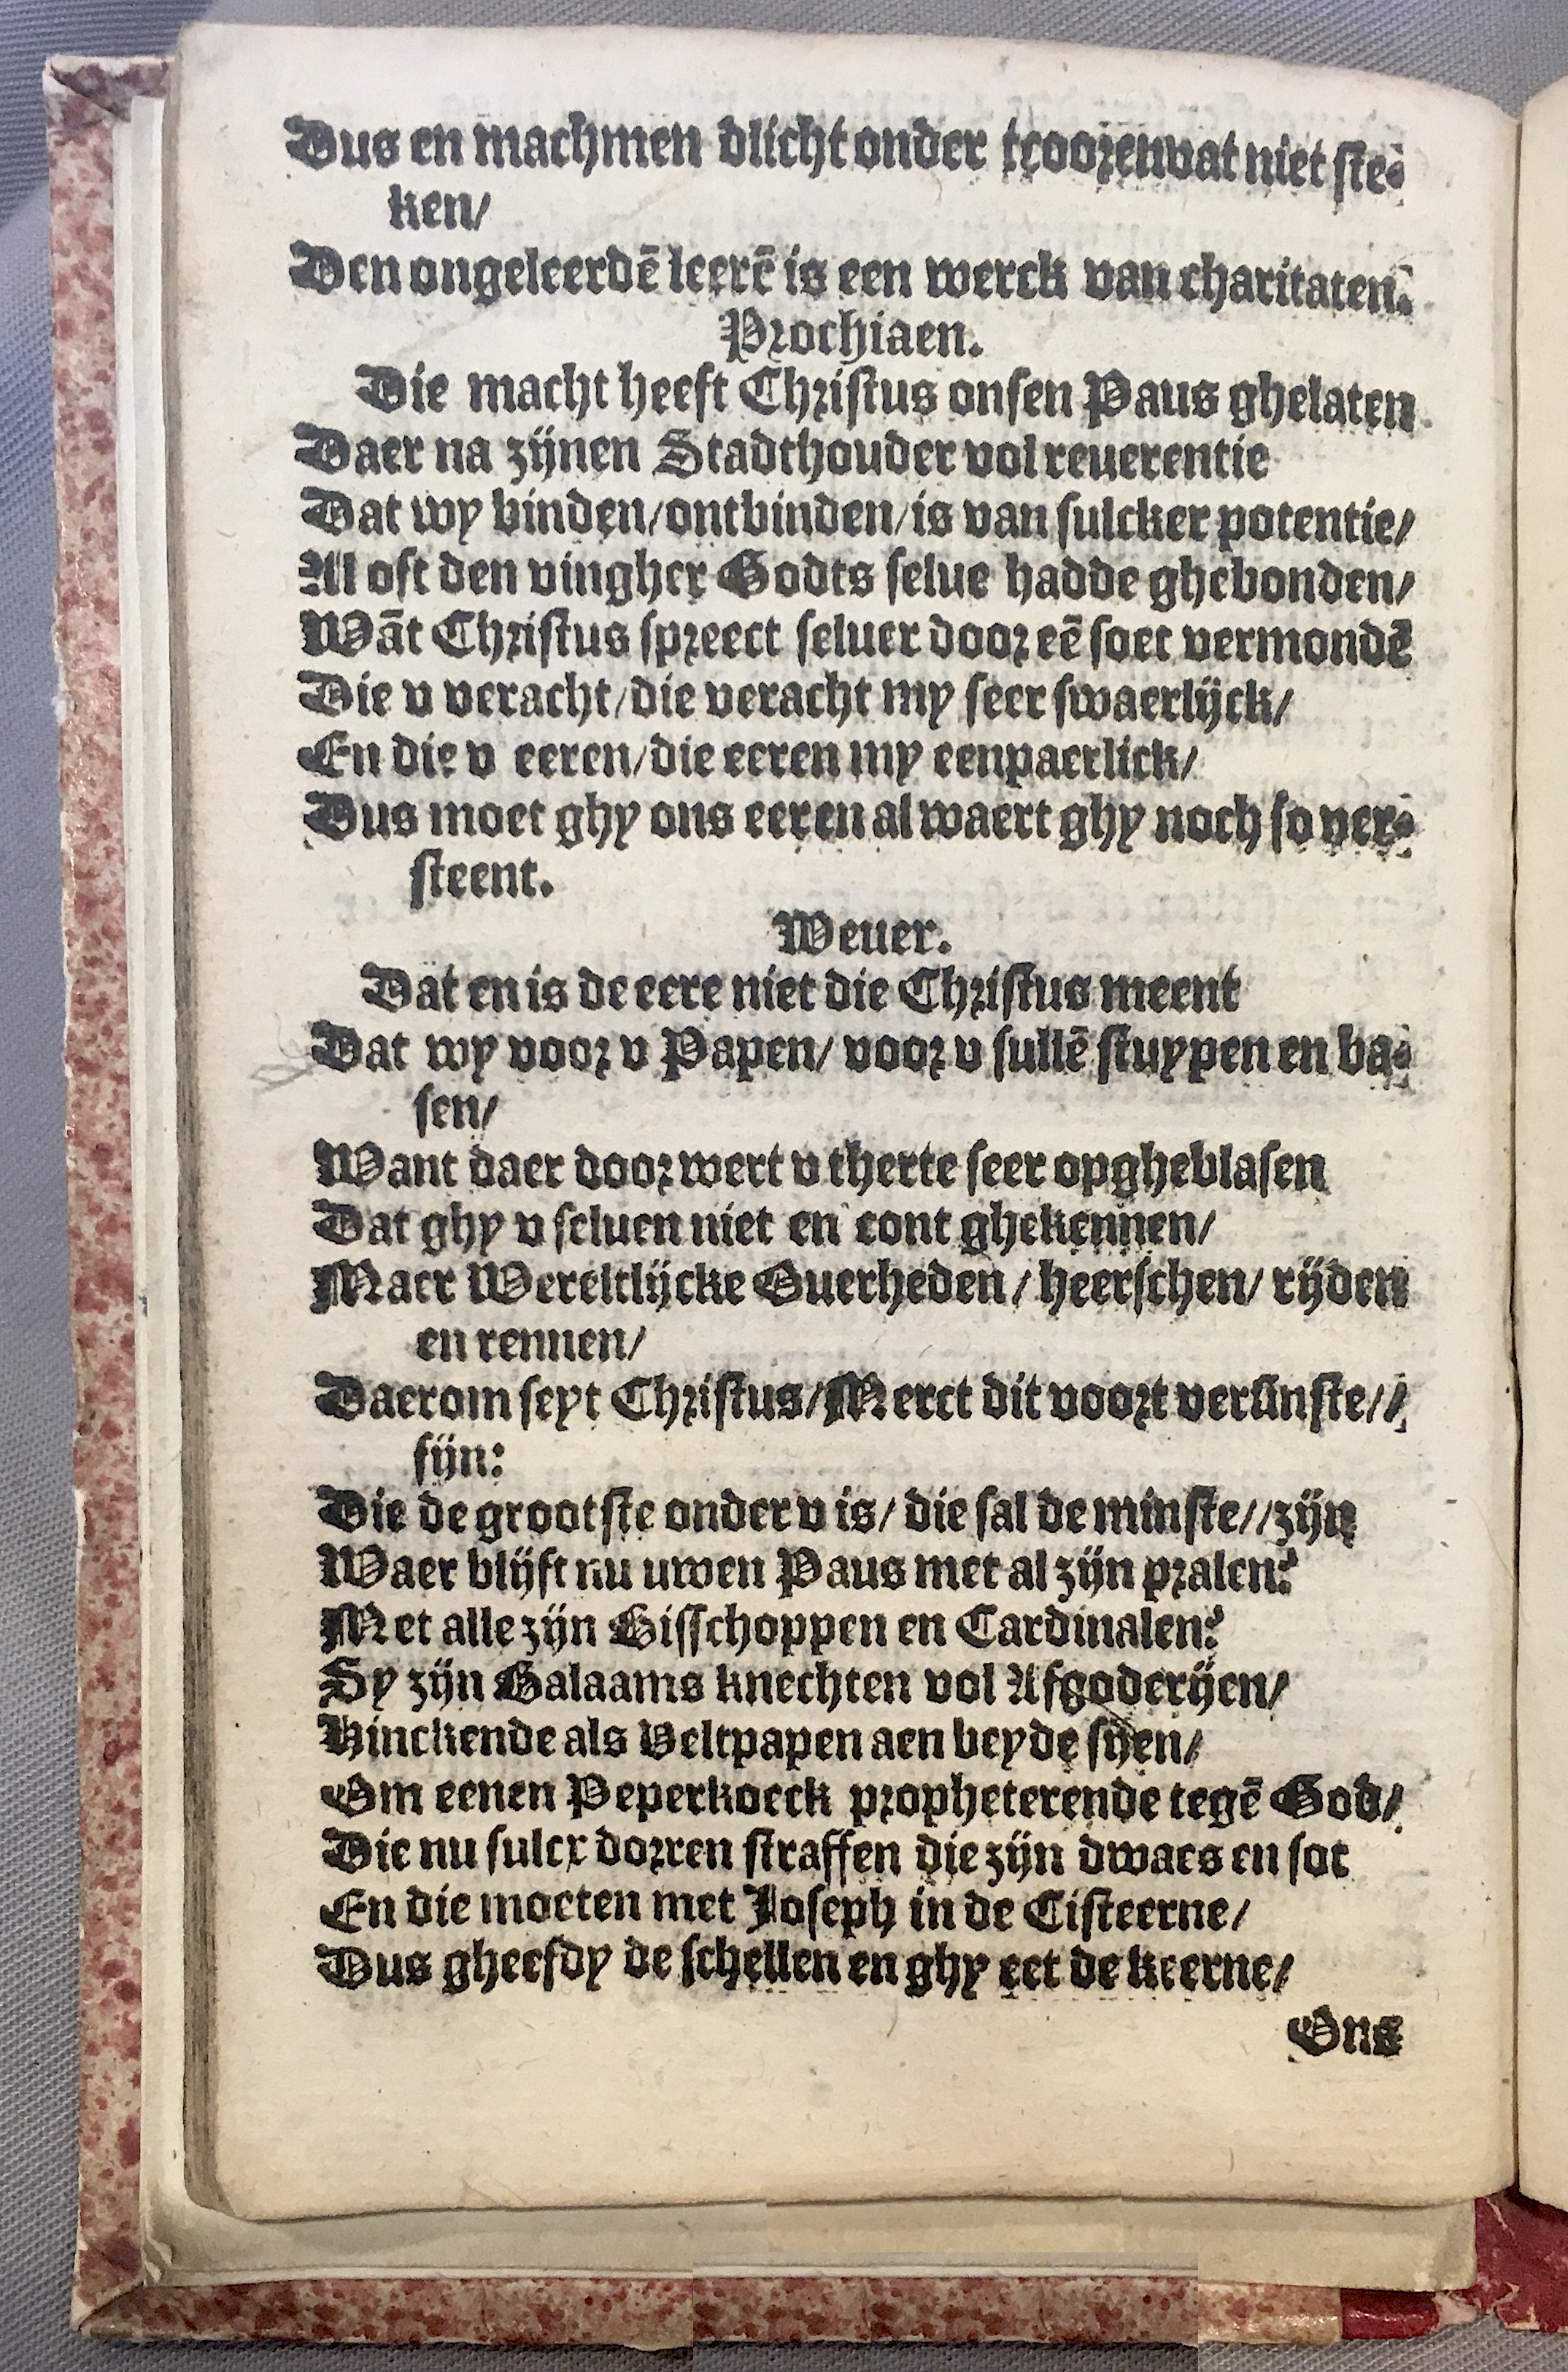 Dus en machmen dlicht onder tcoorenvat niet ste-
ken/
Den ongeleerdē leerē is een werck van charitaten.
Prochiaen.
Die macht heeft Christus onsen Paus ghelaten
Daer na zijnen Stadthouder vol reuerentie
Dat wy binden/ontbinden/is van sulcker potentie/
Al oft den vingher Godts selue hadde ghebonden/
Wāt Christus spreect seluer door eē soet vermondē
Die v veracht/die veracht my seer swaerlijck/
En die v eeren/die eeren my eenpaerlick/
Dus moet ghy ons eeren al waert ghy noch so ver-
steent.
Weuer.
Dat en is de eere niet die Christus meent
Dat wy voor v Papen/ voor v sullē stuypen en ba-
sen/
Want daer door wert v therte seer opgheblasen
Dat ghy v seluen niet en cont ghekennen/
Maer Wereltlijcke Ouerheden/ heerschen/ rijden
en rennen/
Daerom seyt Christus/Merct dit voort versinste//
sijn:
Die de grootste onder v is/ die sal de minste//zijn
Waer blijft nu uwen Paus met al zijn pralen?
Met alle zijn Bisschoppen en Cardinalen?
Sy zijn Balaams knechten vol Afgoderijen/
Hinckende als Beltpapen aen beyde sijen/
Om eenen Peperkoeck propheterende tegē God/
Die nu sulcx dorren straffen die zijn dwaes en sot
En die moeten met Joseph in de Cisteerne/
Dus gheefdy de schellen en ghy eet de keerne/
Ons